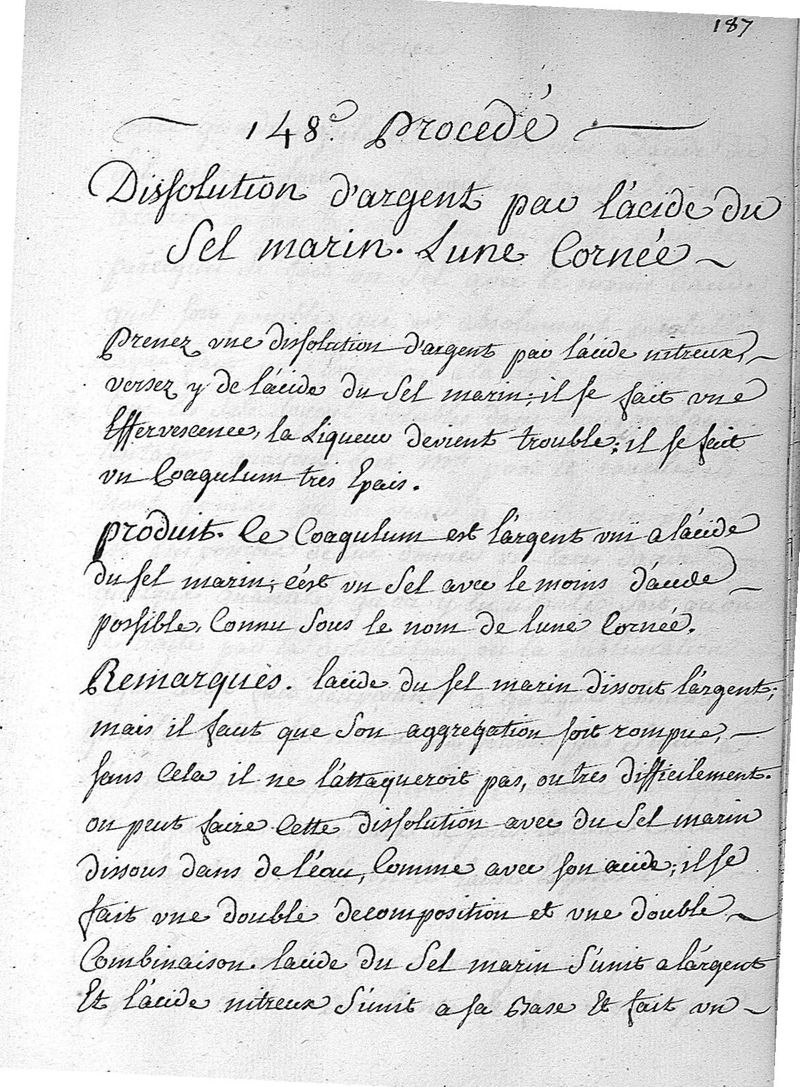 187
148.e Procedé
Dissolution d'argent par l'acide du
Sel marin. Lune Cornée
Prenez vne dissolution d'argent par l'acide nitreux,
versez y de l'acide du Sel marin; il se fait vne
Effervescence, la Liqueur devient trouble; il se fait
vn Coagulum tres Epais.
produit. Ce Coagulum est l'argent vni a l'acide
du sel marin; c'est vn Sel avec le moins d'acide
possible, Connu Sous le nom de lune Cornée.
Remarques. lacide du sel marin dissout l'argent;
mais il faut que Son aggregation soit rompue,
sans Cela il ne l'attaqueroit pas, ou tres difficilement.
on peut faire Cette dissolution avec du Sel marin
dissous dans de l'eau, Comme avec son acide; il se
fait vne double decomposition et vne double
Combinaison. lacide du Sel marin S'unit a l'argent
Et l'acide nitreux S'unit a sa Base Et fait vn